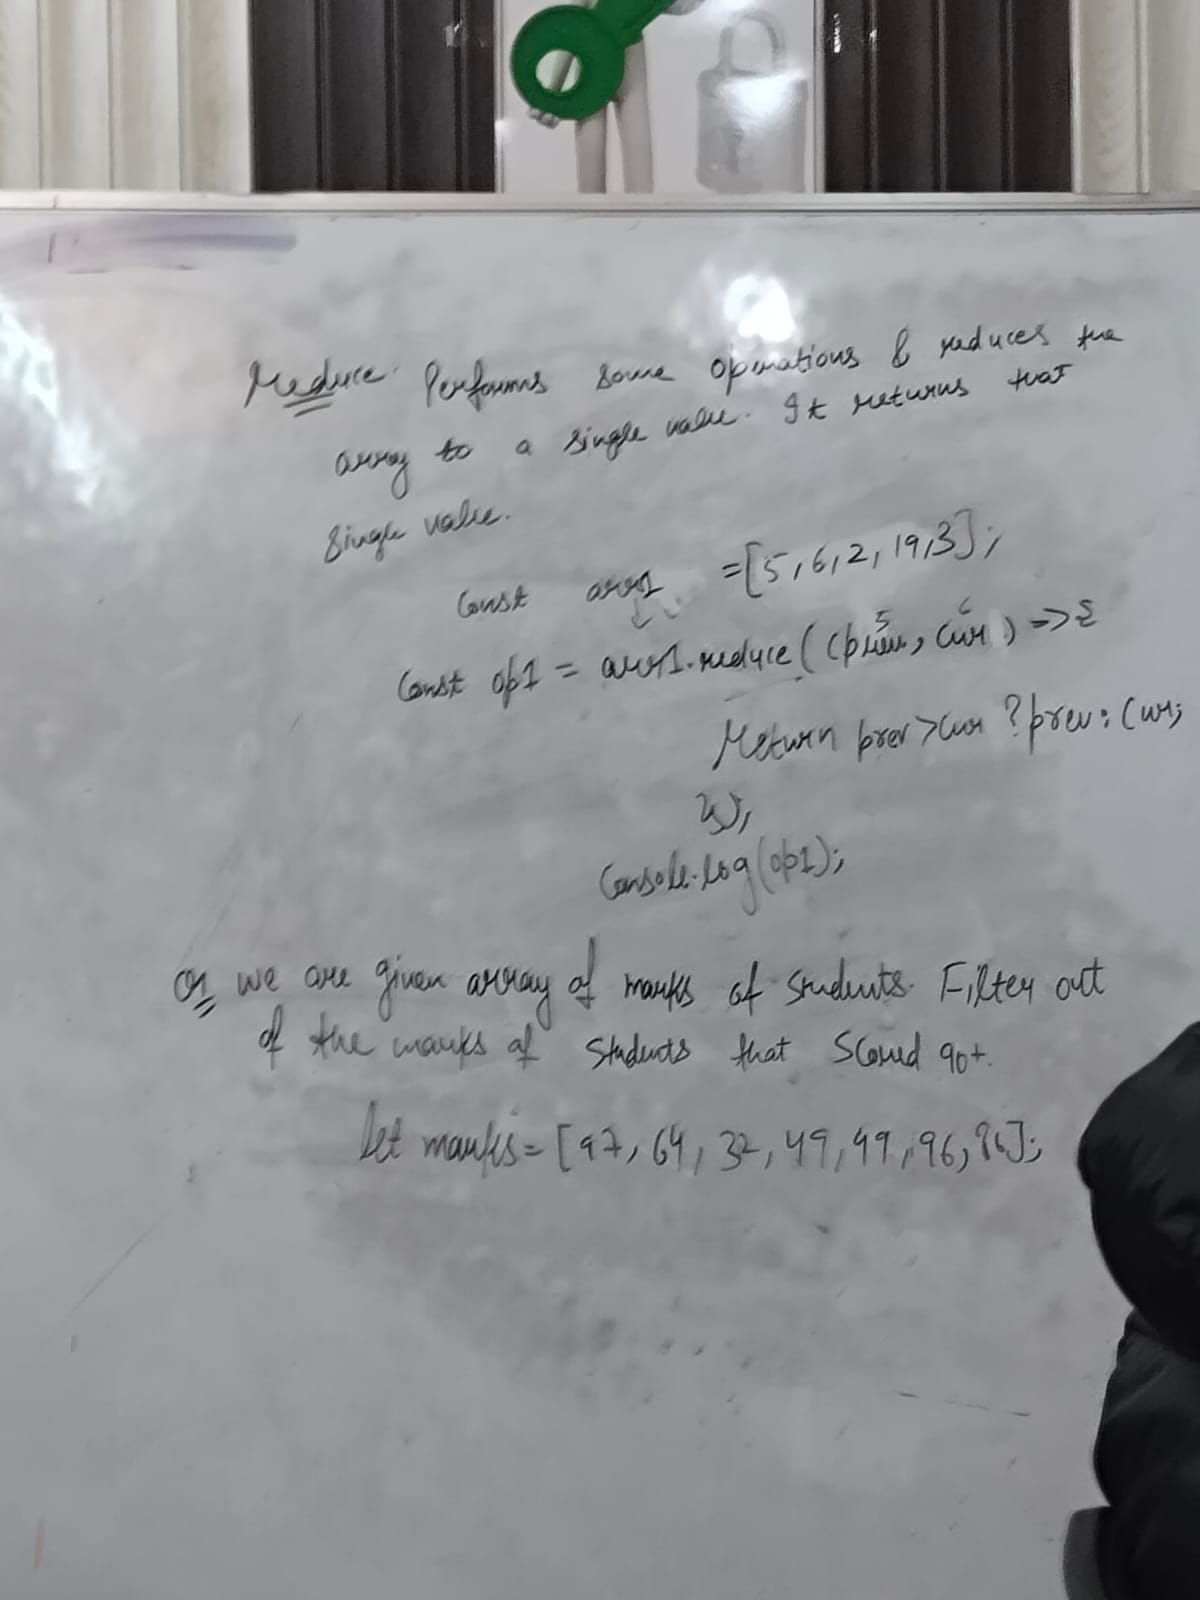 Reduce Performs some operations & reduces the
array to a single value. It returns that
single value.
Const arr1 =[5,6,2,19,3];
5 6
Const op1 = arr1.reduce((prev, cur) => {
Return prev>cur ? prev : cur;
});
Console.log(op1);
Q1 we are given array of marks of students. Filter out
of the marks of students that scored 90+.
let marks = [97, 64, 32, 49, 99, 96, 86];